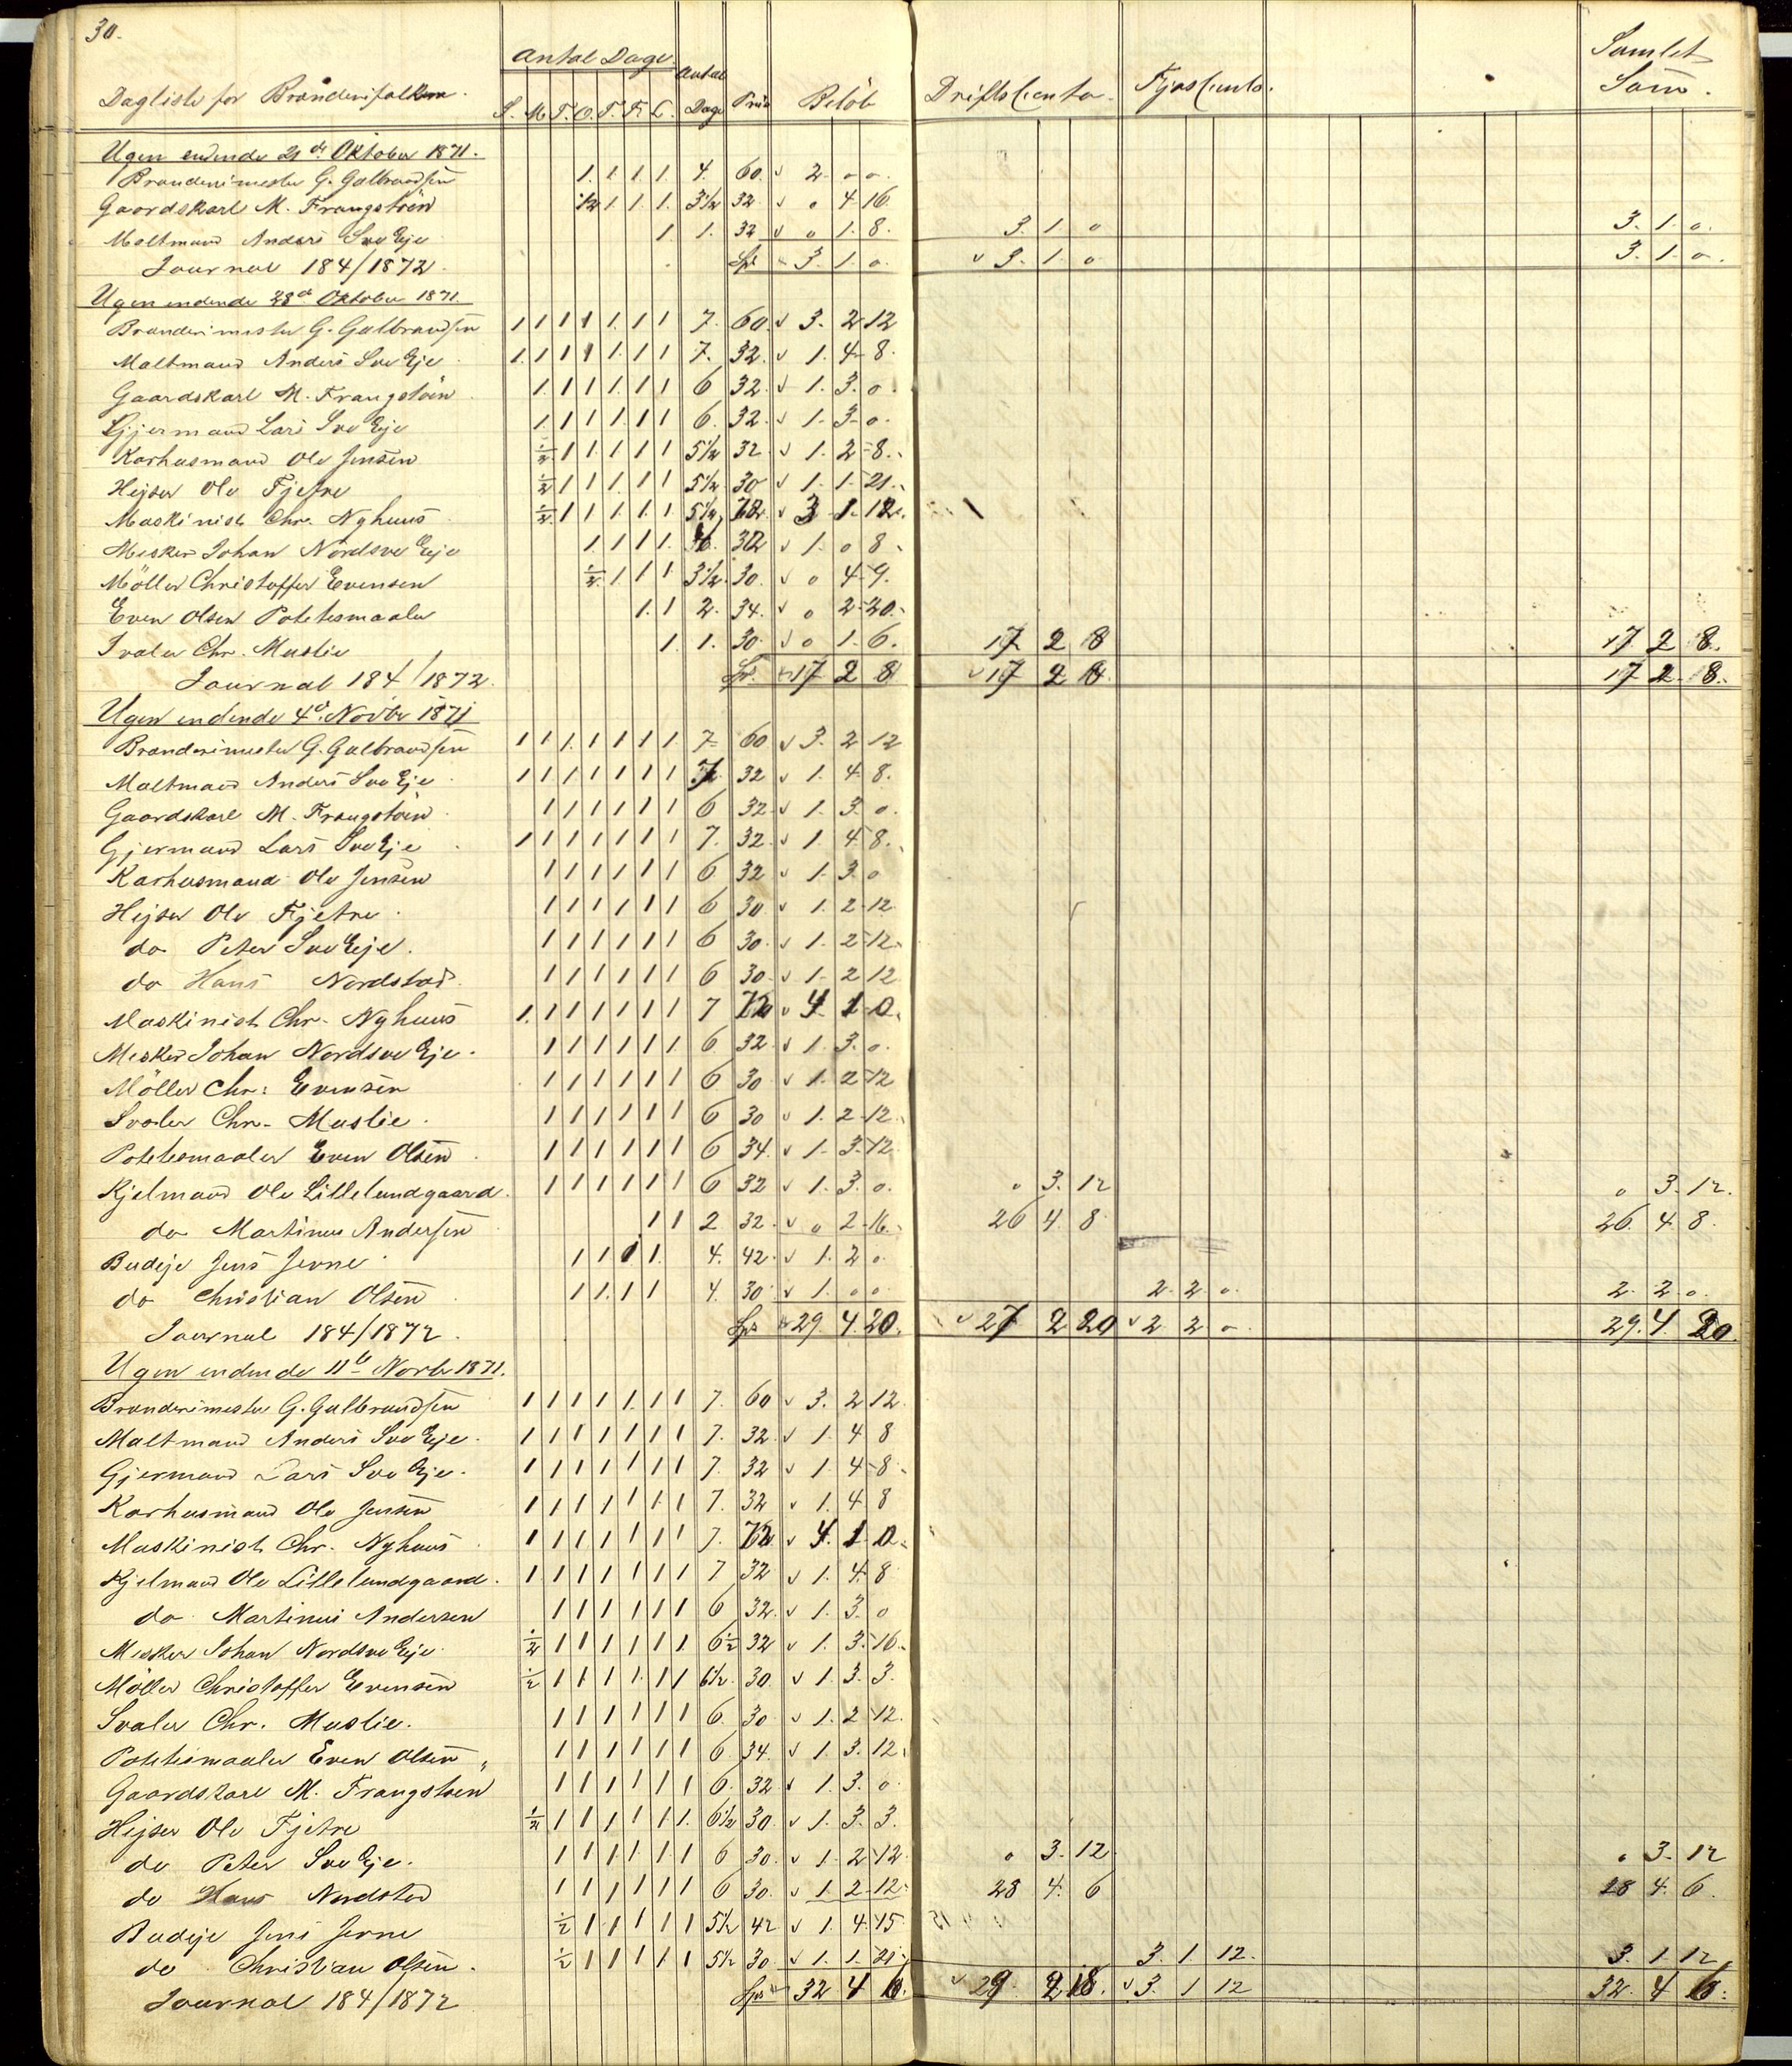 30.
Dagliste for Brænderifolkene. Antal Dage S. M. T. O. T. F. L. Antal Dage Pris Beløb Driftsconto. Fjøsconto. Samlet Sum.
Ugen endende 21de Oktober 1871.
Brænderimester G. Gulbrandsen 1. 1 1. 1. 4. 60. v 2 - o - o -
Gaardskarl M. Frangstøen 1/2 1 1. 1. 3 1/2 32 v o 4 16
Maltmand Anders Sve Eje 1 1. 32 v o 1. 8. 3. 1. o 3. 1. o.
Journal 184/1872. Spd 3. 1. o. v 3. 1. o 3. 1. o.
Ugen endende 28de Oktober 1871
Brænderimester G. Gulbrandsen 1 1 1 1 1. 1. 1 7. 60 v 3. 2 12
Maltmand Anders Sve Eje 1. 1 1 1 1. 1 1 7. 32. v 1. 4 8.
Gaardskarl M. Frangstøen 1. 1 1 1. 1 1 6 32. v 1. 3. o.
Gjermand Lars Sve Eje 1. 1 1 1 1 1 6. 32. v 1. 3. o.
Karhusmand Ole Jensen 1/2 1 1. 1 1 1 5 1/2 32 v 1. 2 8.
Hejser Ole Fjetre 1/2 1 1 1. 1 1 5 1/2 30 v 1. 1 21.
Maskinist Chr. Nyhuus 1/2 1 1 1. 1. 1 5 1/2 72. v 3 1 12.
Mesker Johan Nordsve Eje 1. 1 1 1. 4. 32 v 1. o 8
Möller Christoffer Evensen 1/2 1 1 1 3 1/2 30. v o 4 9.
Even Olsen Potetesmaaler 1. 1 2. 34. v o 2 20.
Svaler Chr. Muslie 1. 1. 30 v o 1. 6. 17 2 8 17 2 8.
Journal 184/1872. Spd 17 2 8 v 17 2 8 17 2 8.
Ugen endende 4de Novbr 1871
Brænderimester G. Gulbrandsen 1 1 1. 1 1 1 1 7 60 v 3. 2 12
Maltmand Anders Sve Eje 1 1 1 1 1 1 1 7 32 v 1. 4. 8.
Gaardskarl M. Frangstøen 1 1 1 1 1 1 6 32 v 1. 3. o.
Gjermand Lars Sve Eje 1 1 1 1 1 1 1 7. 32. v 1. 4 8.
Karhusmand Ole Jensen 1 1 1 1 1 1 6 32 v 1. 3. o
Hejser Ole Fjetre. 1 1 1 1 1 1 6 30 v 1. 2 12
do Peter Sve Eje. 1 1 1 1 1 1 6 30. v 1. 2 12.
do Hans Nordstad. 1 1 1 1 1 1 6 30. v 1. 2 12
Maskinist Chr. Nyhuus 1. 1 1 1 1 1 1 7 72 v 4 1 0.
Mesker Johan Nordsve Eje. 1 1 1 1 1 1 6 32 v 1. 3. o.
Möller Chr: Evensen 1 1 1 1 1 1 6 30 v 1. 2 12
Svaler Chr. Muslie. 1 1 1 1 1 1 6 30 v 1. 2 12.
Potetesmaaler Even Olsen 1 1 1 1 1 1 6 34. v 1. 3. 12
Kjelmand Ole Lillelundgaard. 1 1 1 1 1 1 6 32 v 1. 3. o. o 3. 12 o 3. 12.
do Martinus Andersen 1 1 2 32. v o 2 16. 26 4 8 26. 4. 8.
Budeje Jens Jevne 1 1 1 1. 4. 42. v 1. 2 o
do Christian Olsen 1 1. 1 1 4. 30. v 1. o o 2. 2. o. 2. 2. o.
Journal 184/1872. Spd 29. 4. 20. v 27 2 20 v 2 2 o 29. 4. 20.
Ugen endende 11te Novbr 1871.
Brænderimester G. Gulbrandsen 1 1 1 1 1. 1 1 7. 60 v 3. 2 12.
Maltmand Anders Sve Eje. 1 1 1 1 1 1 1 7. 32. v 1. 4 8
Gjermand Lars Sve Eje. 1 1 1 1 1 1 1 7. 32 v 1. 4 8.
Karhusmand Ole Jensen 1 1 1 1 1 1. 1 7. 32 v 1. 4 8
Maskinist Chr. Nyhuus 1 1 1 1 1 1 1 7. 72. v 4. 1 0.
Kjelmand Ole Lillelundgaard. 1 1 1 1 1 1 1 7 32 v 1. 4. 8
do Martinus Andersen 1 1 1 1 1 1 6 32. v 1. 3. o
Mesker Johan Nordsve Eje 1/2 1 1 1 1 1 1 6 1/2 32 v 1. 3. 16.
Möller Christoffer Evensen 1/2 1 1 1 1. 1 1 6 1/2 30. v 1. 3. 3.
Svaler Chr. Muslie. 1 1 1 1 1 1 6. 30. v 1. 2 12.
Potetesmaaler Even Olsen 1 1 1 1 1 1 6. 34. v 1. 3. 12.
Gaardskarl M. Frangstøen 1 1 1 1 1 1 6. 32. v 1. 3. o.
Hejser Ole Fjetre 1/2 1 1 1 1 1 1. 6 1/2 30. v 1. 3. 3.
do Peter Sve Eje. 1 1 1 1. 1 1 6 30. v 1. 2 12 o 3. 12. o 3. 12
do Hans Nordstad 1 1 1 1 1 1 6 30. v 1. 2 12. 28 4. 6 28 4. 6.
Budeje Jens Jevne 1/2 1 1 1 1 1 5 1/2 42 v 1. 4. 15
do Christian Olsen. 1/2 1 1 1 1. 1 5 1/2 30 v 1. 1. 21. 3. 1. 12. 3. 1. 12
Journal 184/1872 Spd 32 4 6. v 29. 2 18. v 3. 1 12 32. 4 6.